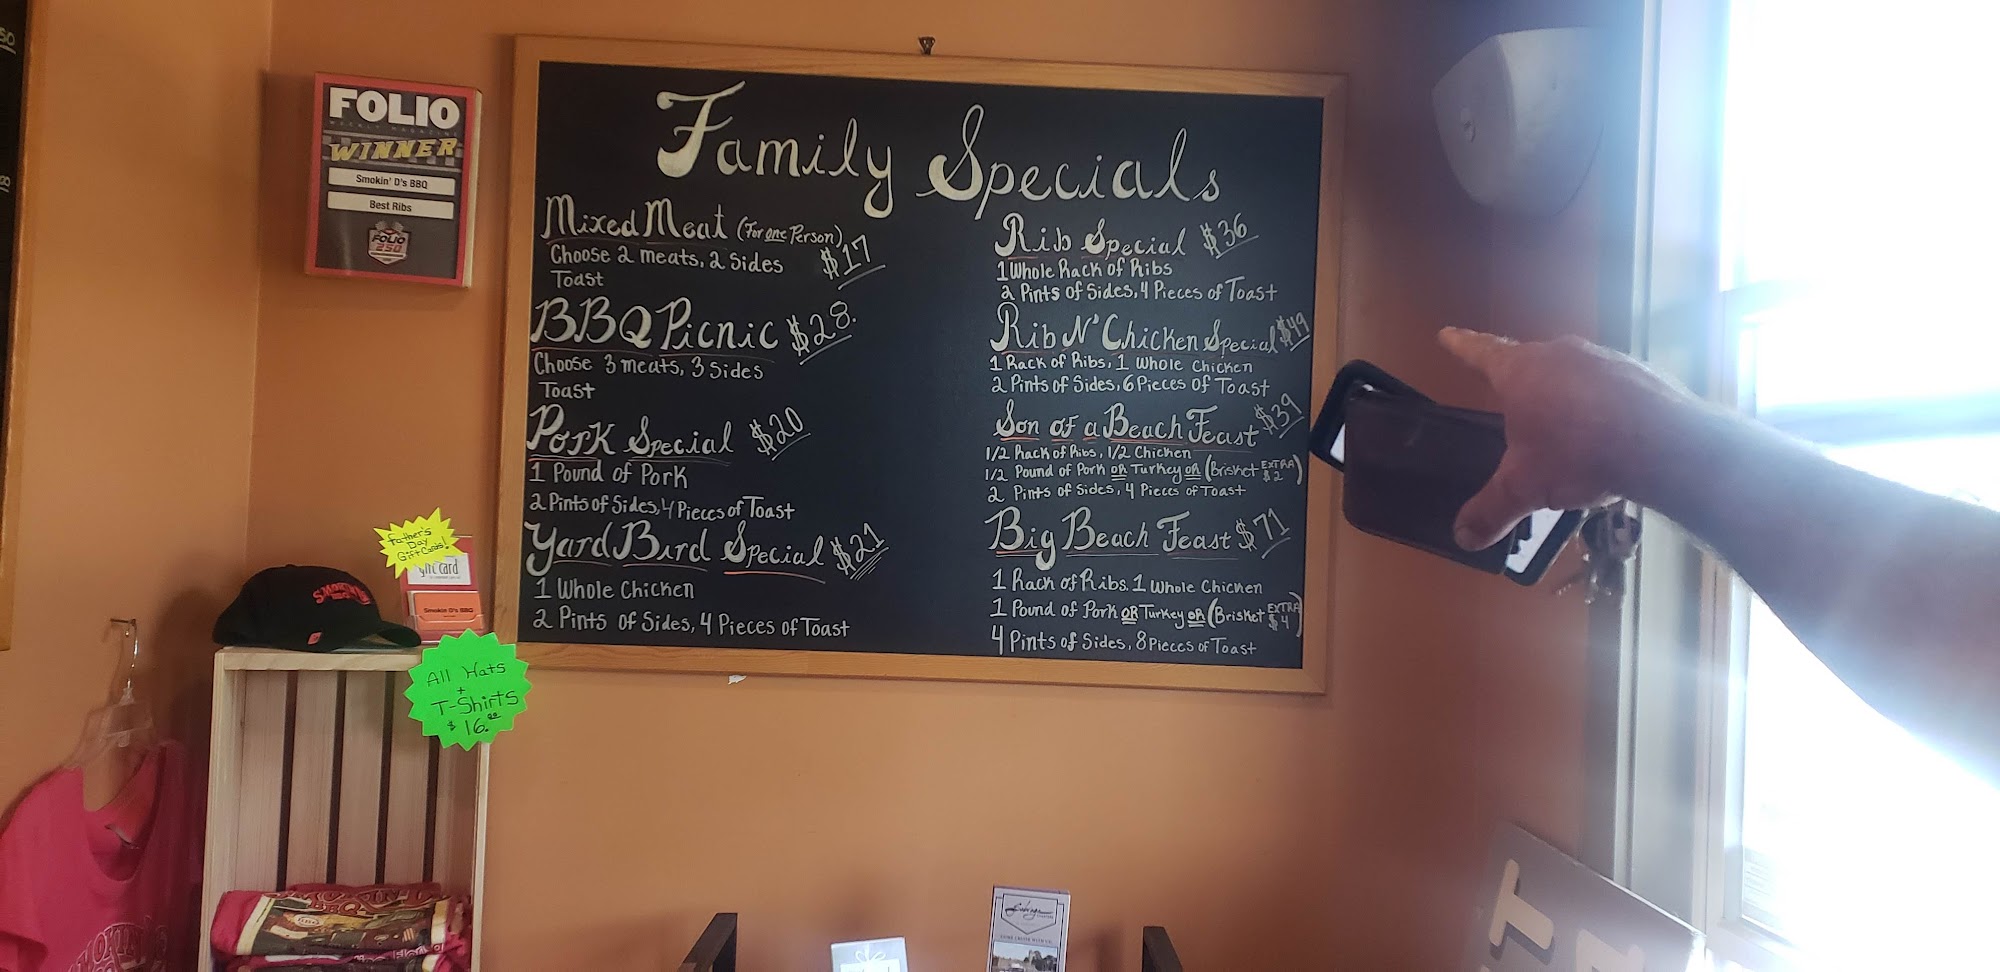 FOLIO
WEEKLY MAGAZINE
WINNER
Smokin' D's BBQ
Best Ribs
FOLIO
250
Family Specials
Mixed Meat (For one Person)
$17
Choose 2 meats, 2 Sides
Toast
BBQ Picnic $28.
Choose 3 meats, 3 Sides
Toast
Pork Special $20
1 Pound of Pork
2 Pints of Sides, 4 Pieces of Toast
Yard Bird Special $21
1 Whole Chicken
2 Pints of Sides, 4 Pieces of Toast
Rib Special $36
1 Whole Rack of Ribs
2 Pints of Sides, 4 Pieces of Toast
Rib N' Chicken Special $49
1 Rack of Ribs, 1 Whole Chicken
2 Pints of Sides, 6 Pieces of Toast
Son of a Beach Feast $39
1/2 Rack of Ribs, 1/2 Chicken
1/2 Pound of Pork OR Turkey OR (Brisket EXTRA $2)
2 Pints of Sides, 4 Pieces of Toast
Big Beach Feast $71
1 Rack of Ribs. 1 Whole Chicken
1 Pound of Pork OR Turkey OR (Brisket EXTRA $4)
4 Pints of Sides, 8 Pieces of Toast
Father's
Day
Gift Cards!
gift card
Smokin D's BBQ
All Hats
+
T-Shirts
$16.00